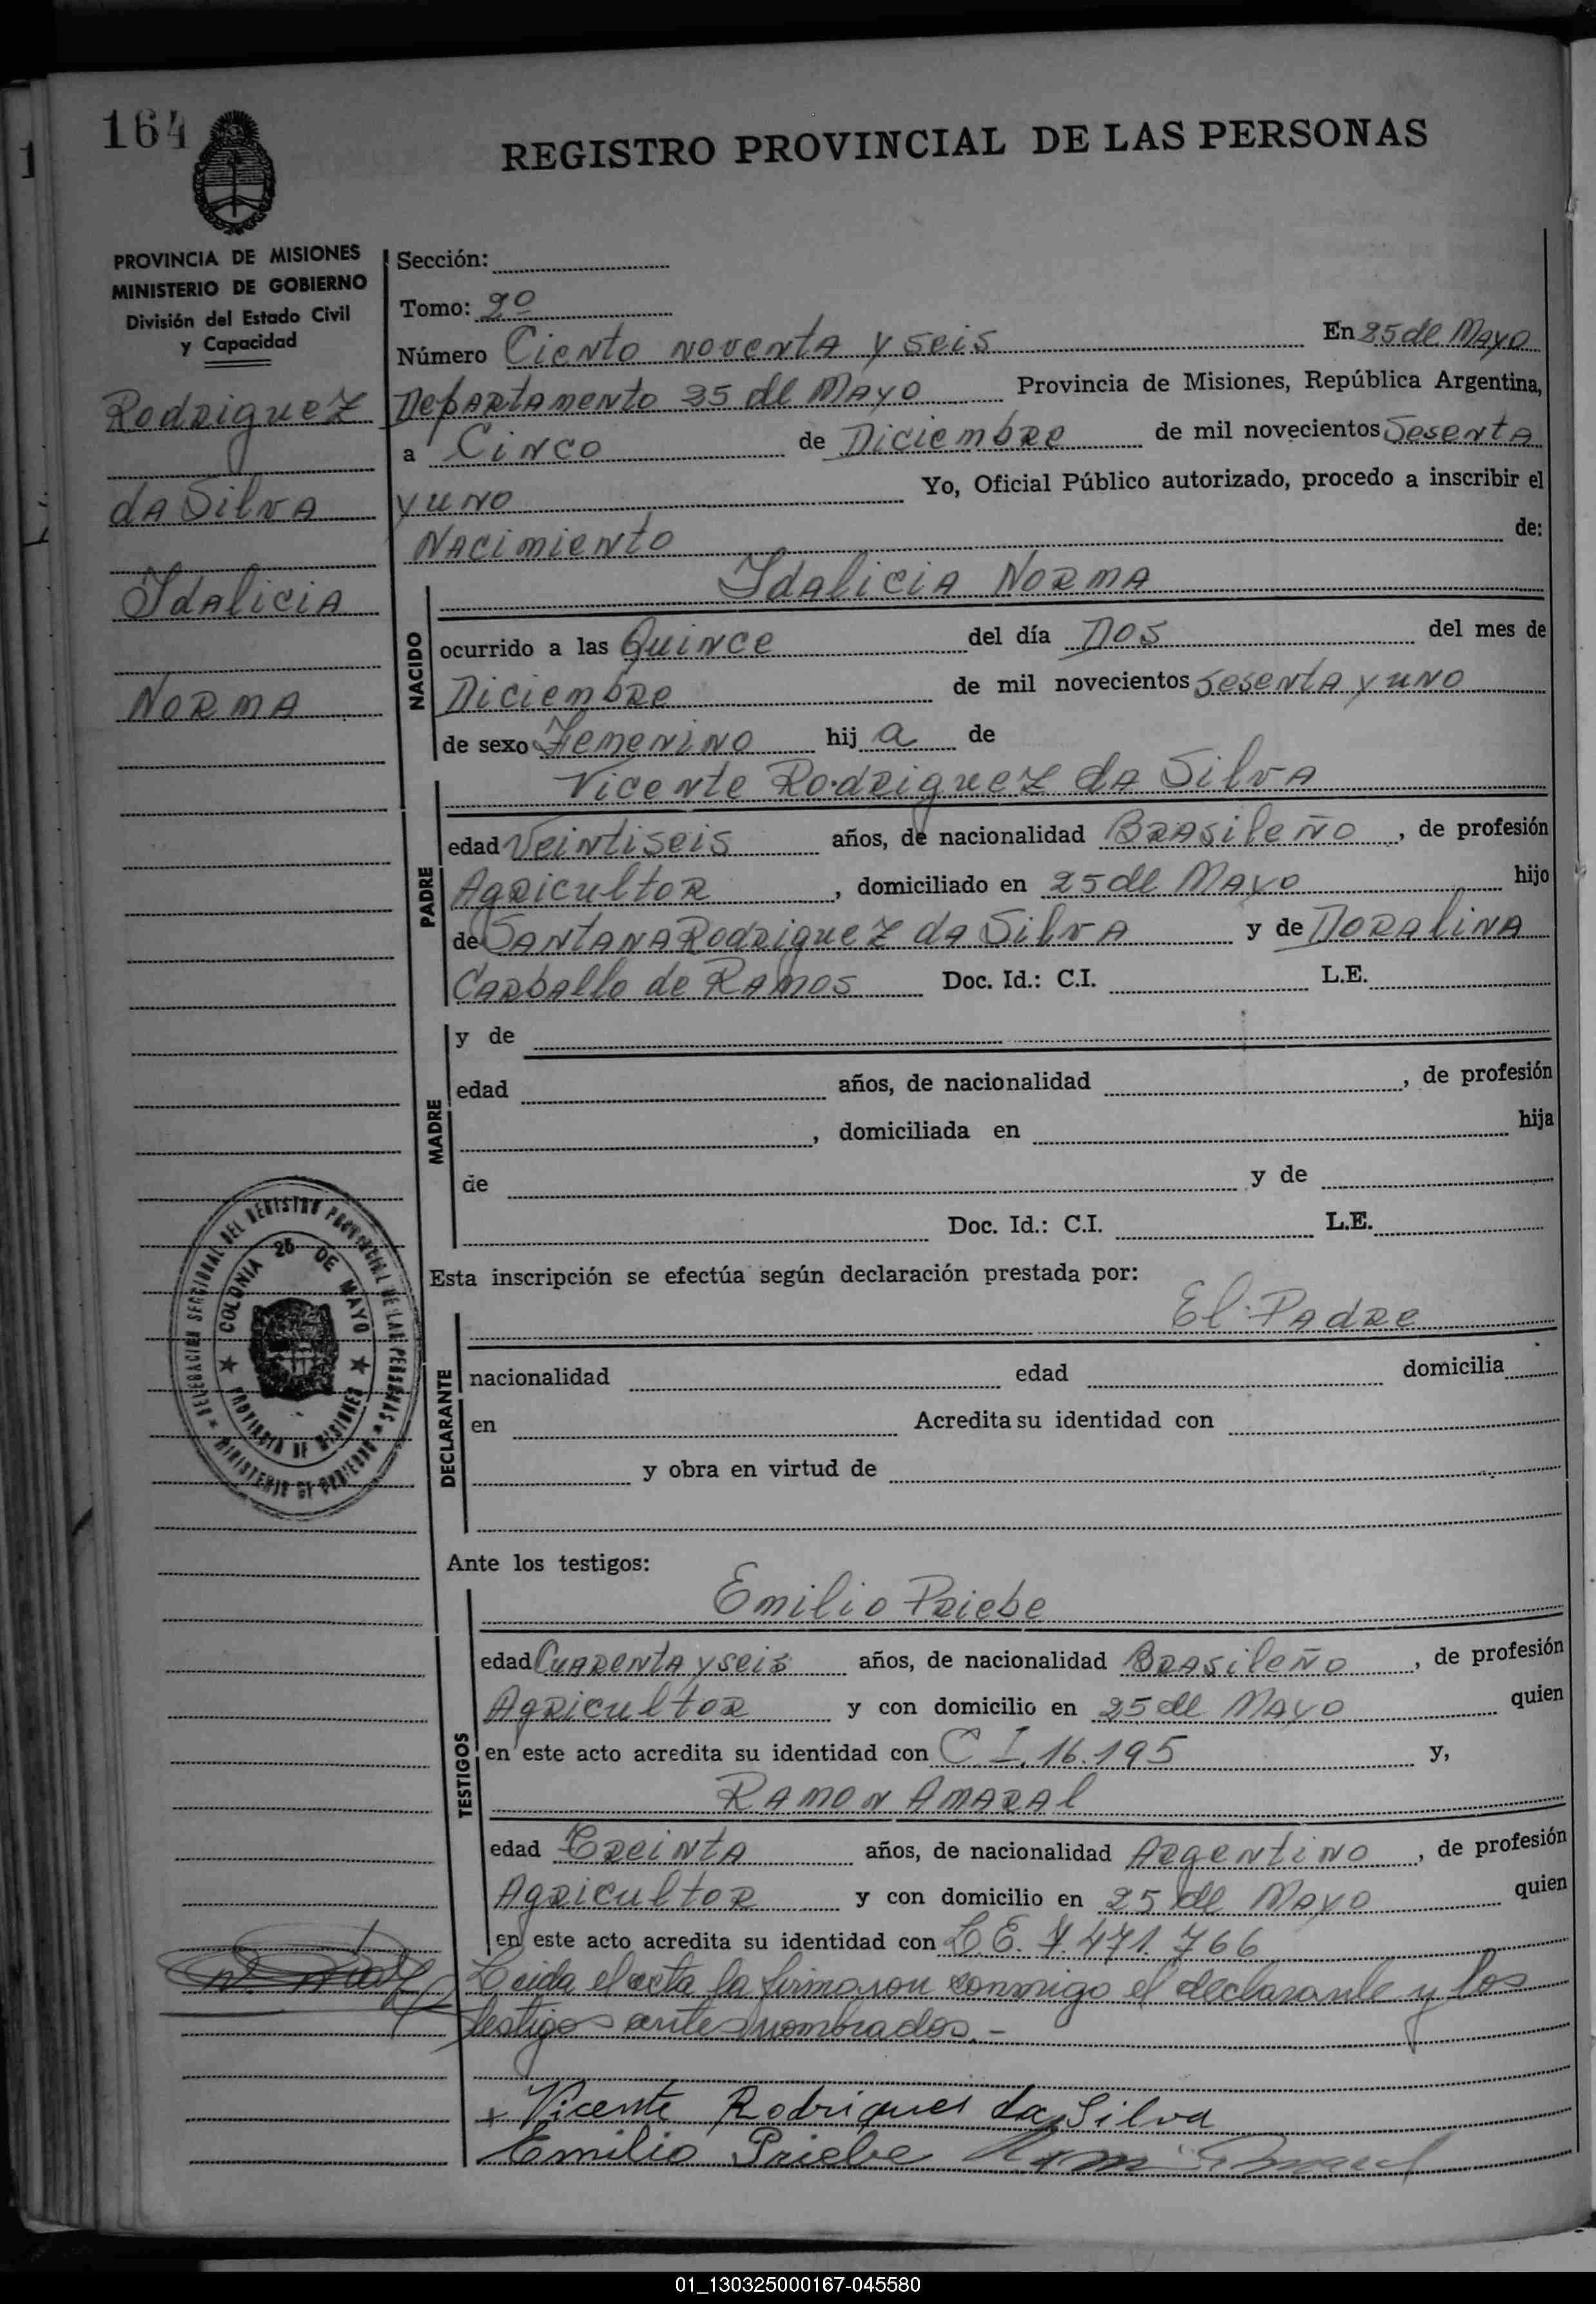 164
REGISTRO PROVINCIAL DE LAS PERSONAS
PROVINCIA DE MISIONES
MINISTERIO DE GOBIERNO
División del Estado Civil
y Capacidad
Rodriguez
da Silva
Idalicia
Norma
Sección:
Tomo: 2º
Número Ciento noventa y seis En 25 de Mayo
Departamento 25 de Mayo Provincia de Misiones, República Argentina,
a Cinco de Diciembre de mil novecientos Sesenta
y uno Yo, Oficial Público autorizado, procedo a inscribir el
Nacimiento de:
NACIDO
Idalicia Norma
ocurrido a las Quince del día Dos del mes de
Diciembre de mil novecientos Sesenta y uno
de sexo Femenino hij a de
PADRE
Vicente Rodriguez da Silva
edad Veintiseis años, de nacionalidad Brasileño, de profesión
Agricultor, domiciliado en 25 de Mayo hijo
de Santana Rodriguez da Silva y de Doralina
Carballo de Ramos Doc. Id.: C.I. L.E.
MADRE
y de
edad años, de nacionalidad , de profesión
, domiciliada en hija
de y de
Doc. Id.: C.I. L.E.
Esta inscripción se efectúa según declaración prestada por:
DECLARANTE
El Padre
nacionalidad edad domicilia
en Acredita su identidad con
y obra en virtud de
DELEGACION SECCIONAL DEL REGISTRO PROVINCIAL DE LAS PERSONAS
COLONIA 25 DE MAYO
PROVINCIA DE MISIONES
MINISTERIO DE GOBIERNO
Ante los testigos:
TESTIGOS
Emilio Priebe
edad Cuarenta y seis años, de nacionalidad Brasileño, de profesión
Agricultor y con domicilio en 25 de Mayo quien
en este acto acredita su identidad con C I. 16.195 y,
Ramon Amaral
edad Treinta años, de nacionalidad Argentino, de profesión
Agricultor y con domicilio en 25 de Mayo quien
en este acto acredita su identidad con L.E. 7.471.766
Leida el acta la firmaron conmigo el declarante y los
testigos antes nombrados.-
x Vicente Rodrigues da Silva
Emilio Priebe
01_130325000167-045580